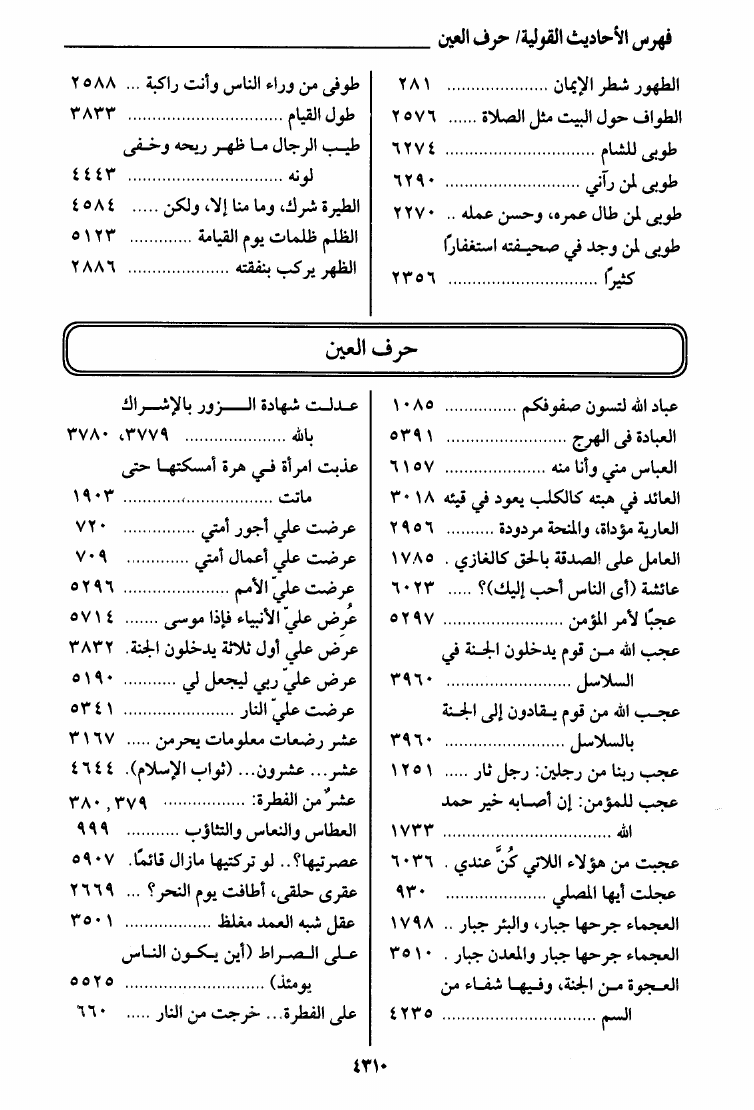 فهرس الأحاديث القولية/ حرف العين
الطهور شطر الإيمان ..................... ٢٨١
الطواف حول البيت مثل الصلاة ...... ٢٥٧٦
طوبى للشام ............................. ٦٢٧٤
طوبى لمن رآني .......................... ٦٢٩٠
طوبى لمن طال عمره، وحسن عمله .. ٢٢٧٠
طوبى لمن وجد في صحيفته استغفارًا
كثيرًا .............................. ٢٣٥٦
طوفى من وراء الناس وأنت راكبة ... ٢٥٨٨
طول القيام ............................... ٣٨٣٣
طيب الرجال ما ظهر ريحه وخفى
لونه ............................... ٤٤٤٣
الطيرة شرك، وما منا إلا، ولكن ..... ٤٥٨٤
الظلم ظلمات يوم القيامة ............ ٥١٢٣
الظهر يركب بنفقته .................... ٢٨٨٦
حرف العين
عباد الله لتسون صفوفكم .............. ١٠٨٥
العبادة فى الهرج ........................ ٥٣٩١
العباس مني وأنا منه .................... ٦١٥٧
العائد في هبته كالكلب يعود في قيئه ٣٠١٨
العارية مؤداة، والمنحة مردودة .......... ٢٩٥٦
العامل على الصدقة بالحق كالغازي . ١٧٨٥
عائشة (أى الناس أحب إليك)؟ ..... ٦٠٢٣
عجبًا لأمر المؤمن ........................ ٥٢٩٧
عجب الله من قوم يدخلون الجنة في
السلاسل ......................... ٣٩٦٠
عجب الله من قوم يقادون إلى الجنة
بالسلاسل ........................ ٣٩٦٠
عجب ربنا من رجلين: رجل ثار ..... ١٢٥١
عجب للمؤمن: إن أصابه خير حمد
الله ................................. ١٧٣٣
عجبت من هؤلاء اللاتي كُنَّ عندي . ٦٠٣٦
عجلت أيها المصلي .................... ٩٣٠
العجماء جرحها جبار، والبئر جبار .. ١٧٩٨
العجماء جرحها جبار والمعدن جبار . ٣٥١٠
العجوة من الجنة، وفيها شفاء من
السم .............................. ٤٢٣٥
عدلت شهادة الزور بالإشراك
بالله .................... ٣٧٧٩، ٣٧٨٠
عذبت امرأة في هرة أمسكتها حتى
ماتت .............................. ١٩٠٣
عرضت علي أجور أمتي .............. ٧٢٠
عرضت علي أعمال أمتي ............ ٧٠٩
عرضت عليّ الأمم ..................... ٥٢٩٦
عُرِض عليّ الأنبياء فإذا موسى ....... ٥٧١٤
عرض علي أول ثلاثة يدخلون الجنة. ٣٨٣٢
عرض عليّ ربي ليجعل لي ........... ٥١٩٠
عرضت عليّ النار ...................... ٥٣٤١
عشر رضعات معلومات يحرمن ..... ٣١٦٧
عشر... عشرون... (ثواب الإسلام). ٤٦٤٤
عشرٌ من الفطرة: ................ ٣٧٩, ٣٨٠
العطاس والنعاس والتثاؤب ........... ٩٩٩
عصرتيها؟.. لو تركتيها مازال قائمًا. ٥٩٠٧
عقرى حلقى، أطافت يوم النحر؟ ... ٢٦٦٩
عقل شبه العمد مغلظ ................. ٣٥٠١
على الصراط (أين يكون الناس
يومئذ) ............................ ٥٥٢٥
على الفطرة... خرجت من النار ..... ٦٦٠
٤٣١٠